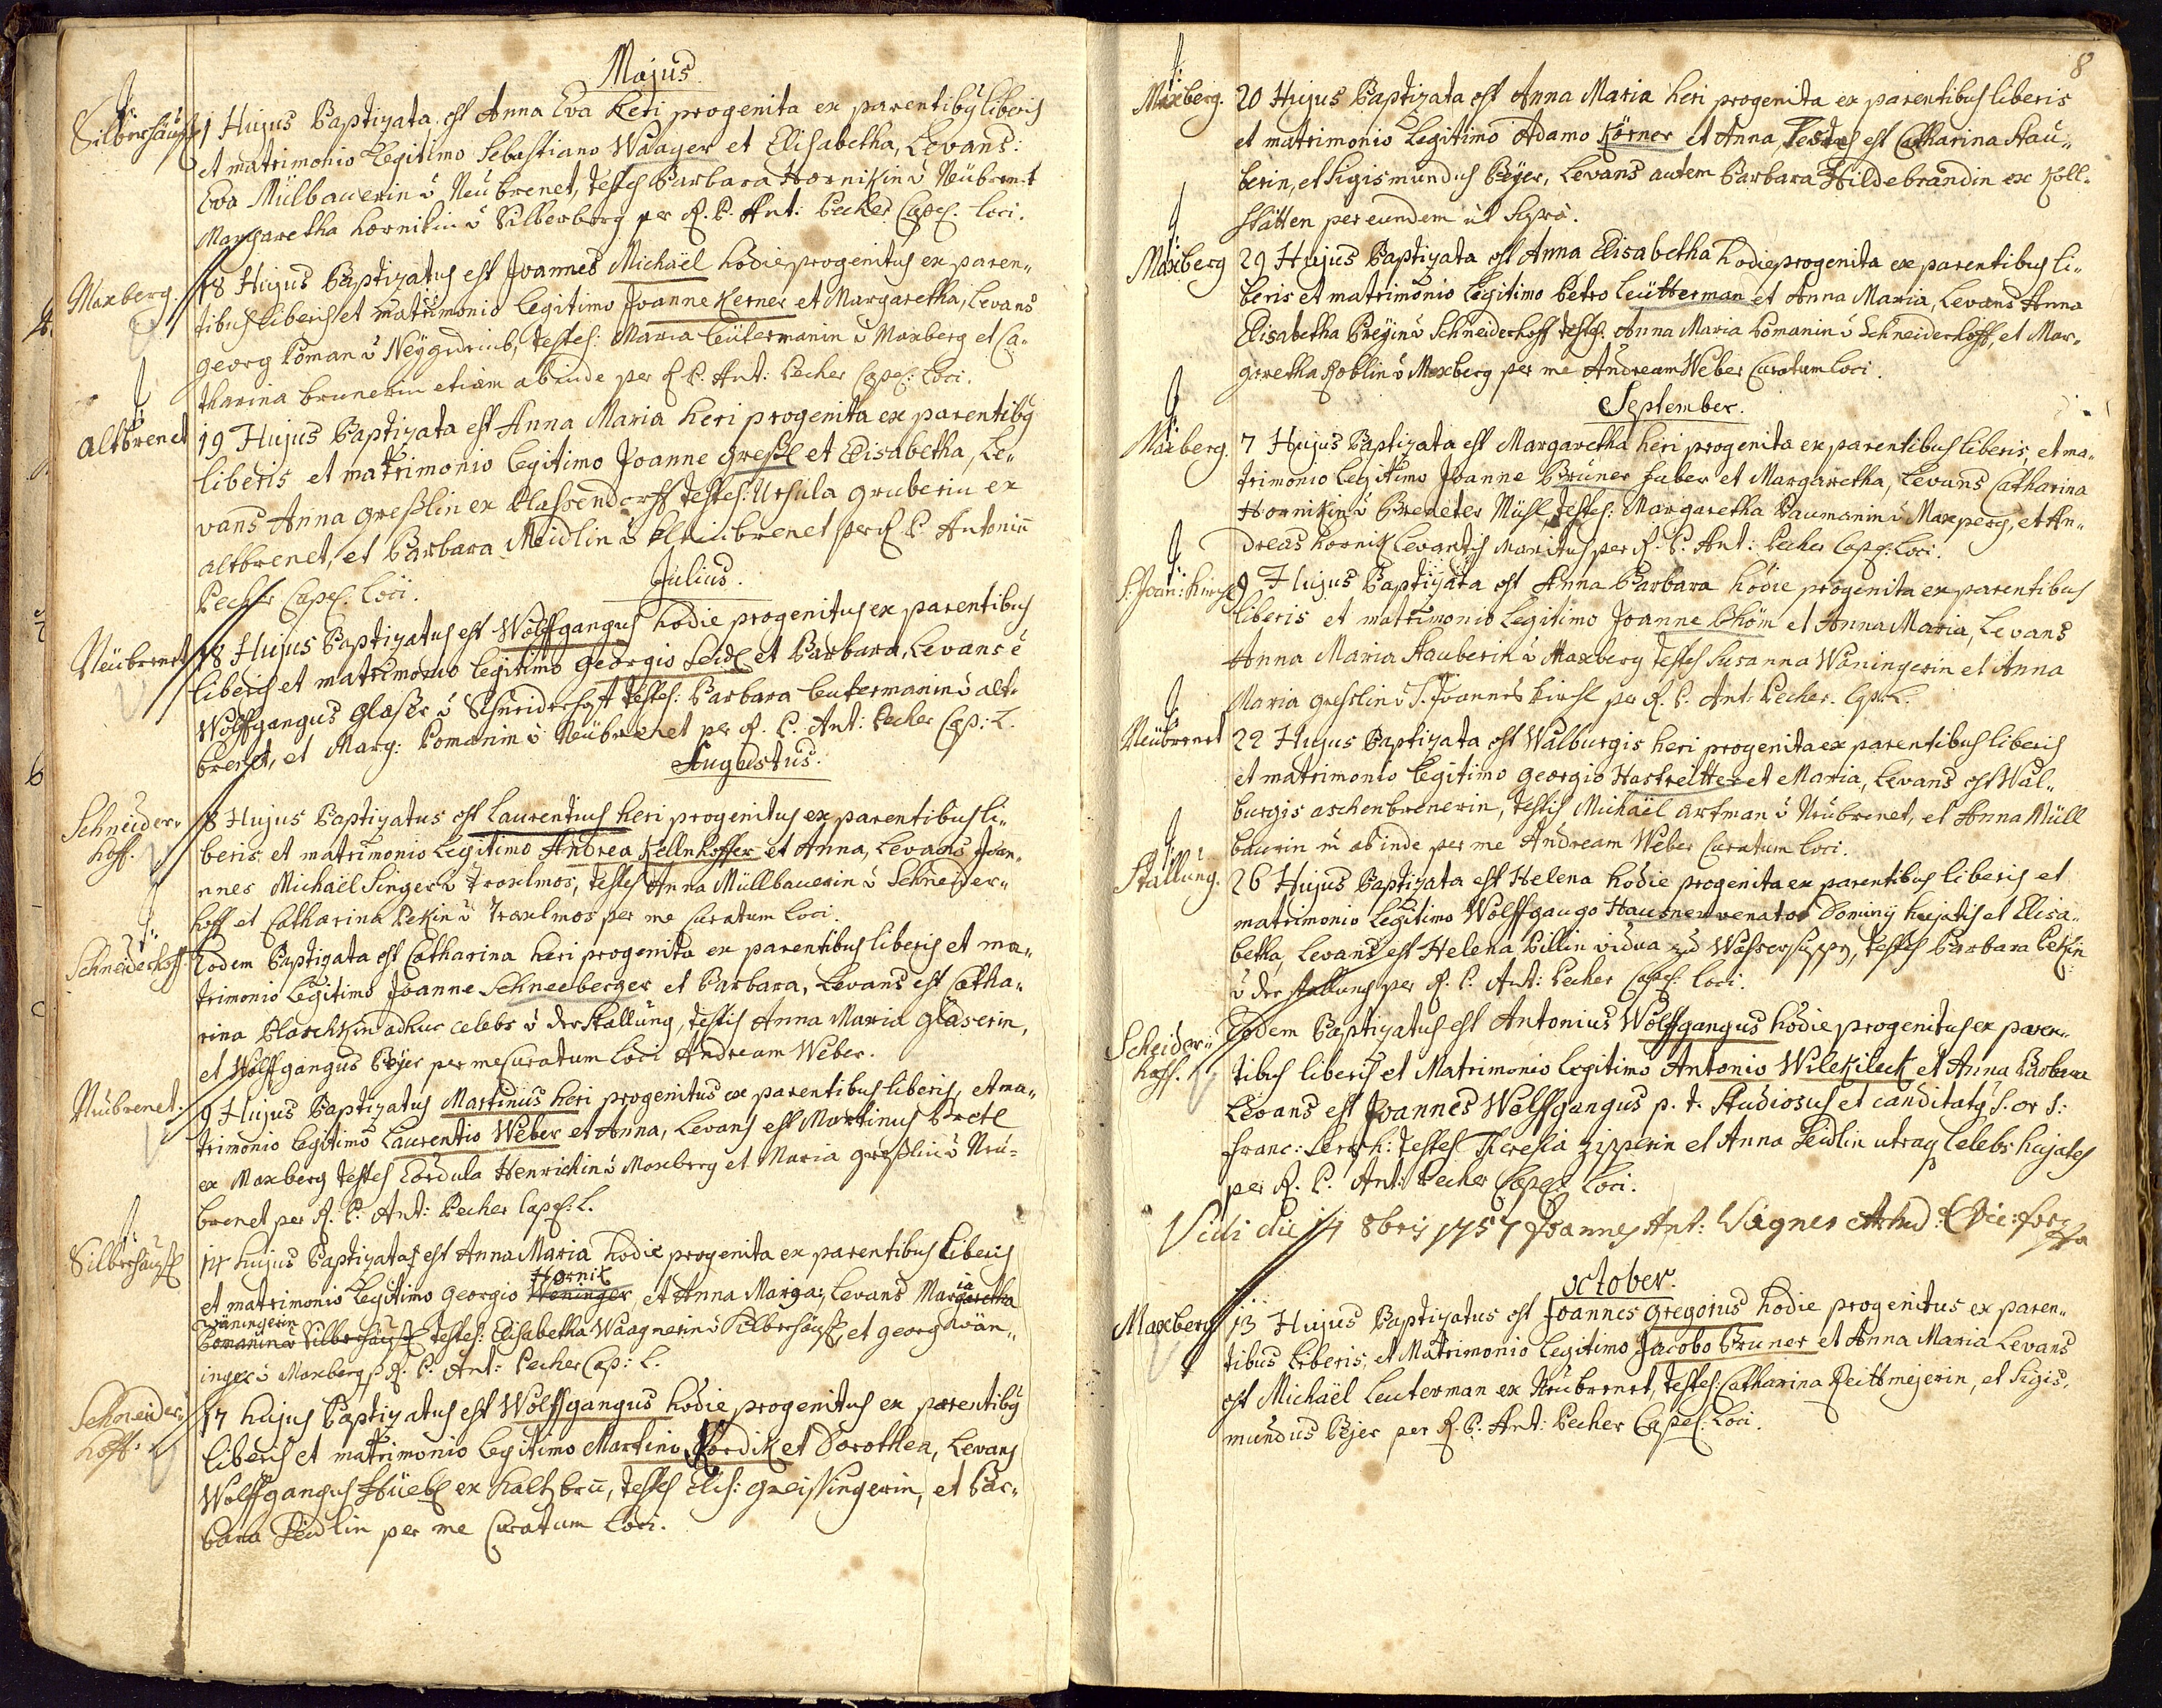 Majus
Silberhäusl 1 Hujus Baptizata est Anna Eva heri progenita ex parentibq liberis
et matrimonio Legitimo Sebastiano Waager et Elisabetha, Levans:
Eva Mülbauerin ù Neubrenet, testes Barbara Hornikin ù Neubrenet
Margaretha hornikin ù Silberberg per R. P. Ant: Pecher Capel. loci.
Maxberg. 18 Hujus Baptizatus est Joannes Michäel hodie progenitus ex paren„
tibus liberis et matrimonio legitimo Joanne Kerner et Margaretha, Levans
georg Poman ù, testes: Maria leütermanin ù Maxberg et Ca„
tharina brunerin etiam abinde per R P. Ant: Pecher Capel: loci.
altbrenet 19 Hujus Baptizata est Anna Maria heri progenita ex parentibq
liberis et matrimonio legitimo Joanne greßl et Elisabetha, Le„
vans Anna greßlin ex klassendorff testes: Ursula gruberin ex
altbrenet, et Barbara Meidlin ù brenet per R P. Antoniu
Pecher Capel. loci.
Julius.
Neubrenet 18 Hujus Baptizatus est Wolffgangus hodie progenitus ex parentibus
liberis et matrimonio legitimo georgio Seidl et Barbara, Levans e
Wolffgangus glaser ù Schneiderhoff testes: Barbara leutermanin ù alt„
brenet, et Marg: Pomanin ù Neubrenet per R. P. Ant: Pecher Cap: L.
Augustus.
Schneider„
hoff. 8 Hujus Baptizatus est Laurentius heri progenitus ex parentibus li„
beris et matrimonio legitimo Andrea Kellnhoffer et Anna, Levans Joan„
nnes Michäel Singer ù traxlmos, testes Anna Müllbauerin ù Schneider„
hoff et Catharina Pekin ù traxlmos per me Curatum loci.
Schneiderhoff. Eodem Baptizata est Catharina heri progenita ex parentibus liberis et ma„
trimonio legitimo Joanne Schneeberger et Barbara, Levans est Catha„
rina Blaschkin adhuc celebs ù der Stallung, testis Anna Maria glaserin,
et Wolffgangus Beyer per me Curatum loci Andream Weber.
Neubrenet. 9 Hujus Baptizatus Martinus heri progenitus ex parentibus liberis, et ma„
trimonio legitimo Laurentio Weber et Anna, Levans est Martinus
ex Maxberg testes Cordula Henrichin ù Maxberg et Maria greßlin ù Neu=
brenet per R. P. Ant: Pecher Capel: L.
Silberhäusl 14 hujus Baptizata est Anna Maria hodie progenita ex parentibus liberis
Hornik
et matrimonio legitimo georgio Weninger, et Anna Maria, Levans Margaretha
ia
Waningerin
Pomanin ù Silberhäusl testes: Elisabetha Waagnerin ù Silberhäusl et georg Wan„
inger ù Maxberg p R. P. Ant: Pecher Cap: L.
Schneider„
hoff. 17 hujus Baptizatus est Wolffgangus hodie progenitus ex parentibq
liberis et matrimonio legitimo Martino Kordik et Dorothea, Levans
Wolffgangus Hüebl ex, testes Elis: greissingerin, et Bar„
bara Seidlin per me Curatum loci.
8
Maxberg. 20 Hujus Baptizata est Anna Maria heri progenita ex parentibus liberis
et matrimonio legitimo Adamo Körner et Anna, testes est Catharina Stau„
berin, et Sigismundus Beyer, Levans autem Barbara Hildebrandin ex Koll„
stätten per eundem ut Supra.
Maxberg 29 Hujus Baptizata est Anna Elisabetha hodie progenita ex parentibus li„
beris et matrimonio legitimo Petro Leütterman et Anna Maria, Levans Anna
Elisabetha Preyin ù Schneiderhoff testes. Anna Maria Pomanin ù Schneiderhoff, et Mar„
garetha Koblin ù Maxberg per me Andream Weber Curatum loci.
September.
Maxberg. 7 Hujus Baptizata est Margaretha heri progenita ex parentibus liberis, et ma„
trimonio legitimo Joanne Bruner faber et Margaretha, Levans Catharina
Hornikin ù Breneter Mühl, testes: Margaretha Paumanin ù Maxperg, et An„
dreas hornik Levantis Maritus per R. P. Ant: Pecher Capel: loci.
S. Joan: Kirchl 9 Hujus Baptizata est Anna Barbara hodie progenita ex parentibus
liberis et matrimonio legitimo Joanne Böhm et Anna Maria, Levans
Anna Maria Stauberin ù Maxberg testes Susanna Waningerin et Anna
Maria greßlin ù S. Joannes Kirchl per R. P. Ant: Pecher. Cap: L.
Neubrenet 22 Hujus Baptizata est Walburgis heri progenita ex parentibus liberis
et matrimonio legitimo georgio Hastreitter et Maria, Levans est Wal„
burgis aschenbrenerin, testis Michäel artman ù Neubrenet, et Anna Müll
baurin abinde per me Andream Weber Curatum loci.
Stallung. 26 Hujus Baptizata est Helena hodie progenita ex parentibus liberis et
matrimonio legitimo Wolffgango Hausner venator Dominij hujatis et Elisa„
betha, Levans est Helena Pillin vidua ex Wassersuppen, testes Barbara Pekin
ù der stallung per R. P. Ant: Pecher Capel: loci.
Scheider„
hoff. Eodem Baptizatus est Antonius Wolffgangus hodie progenitus ex paren„
tibus liberis et Matrimonio legitimo Antonio Wilkileck et Anna Barbara
Levans est Joannes Wolffgangus p. t. Studiosus et canditatq S. or S:
franc: Seraph: testes Theresia Zipperin et Anna Seidlin utraq Celebs hujates
per R. P. Ant: Pecher Capel: loci.
Vidi die 14 8bris 1757 Joannes Ant: Wagner
October.
Maxberg 13 Hujus Baptizatus est Joannes gregorius hodie progenitus ex paren„
tibus liberis, et Matrimonio legitimo Jacobo Bruner et Anna Maria Levans
est Michäel Leuterman ex Neubrenet, testes: Catharina Reittmejerin, et Sigis„
mundus Bejer per R. P. Ant: Pecher Capel: loci.